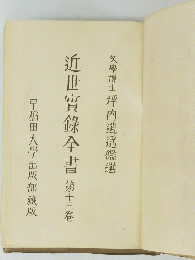 文學博士 坪內逍遙鑑選
近世實錄全書 第十二卷
早稻田大學出版部藏版